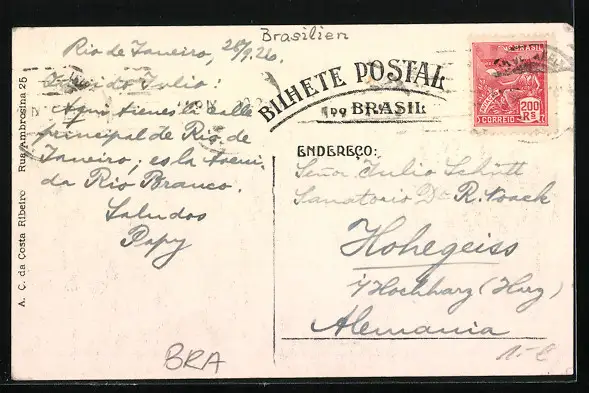 Brasilien
Rio de Janeiro, 26/9.26.
Querido Julio:
Aqui tienes la calle
principal de Rio de
Janeiro; es la Aveni-
da Rio Branco.
Saludos
Papy
BRA
A. C. da Costa Ribeiro Rua Ambrosina 25
BILHETE POSTAL
DO BRASIL
BRASIL
200
Rs
CORREIO
ENDEREÇO:
Señor Julio Schütt
Sanatorio Dr. R. Noack
Hohegeiss
i/Hochharz (Harz)
Alemania
1.- €